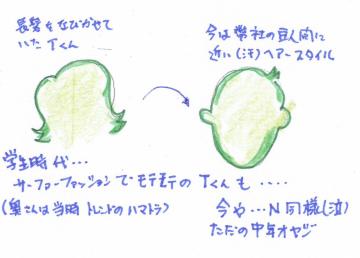 長髪をなびかせて
いたTくん
今は弊社の豆人間に
近い(汗)ヘアースタイル
学生時代…
サーファーファッションでモテモテのTくんも・・・・
(奥さんは当時トレンドのハマトラ)
今や…N同様(泣)
ただの中年オヤジ